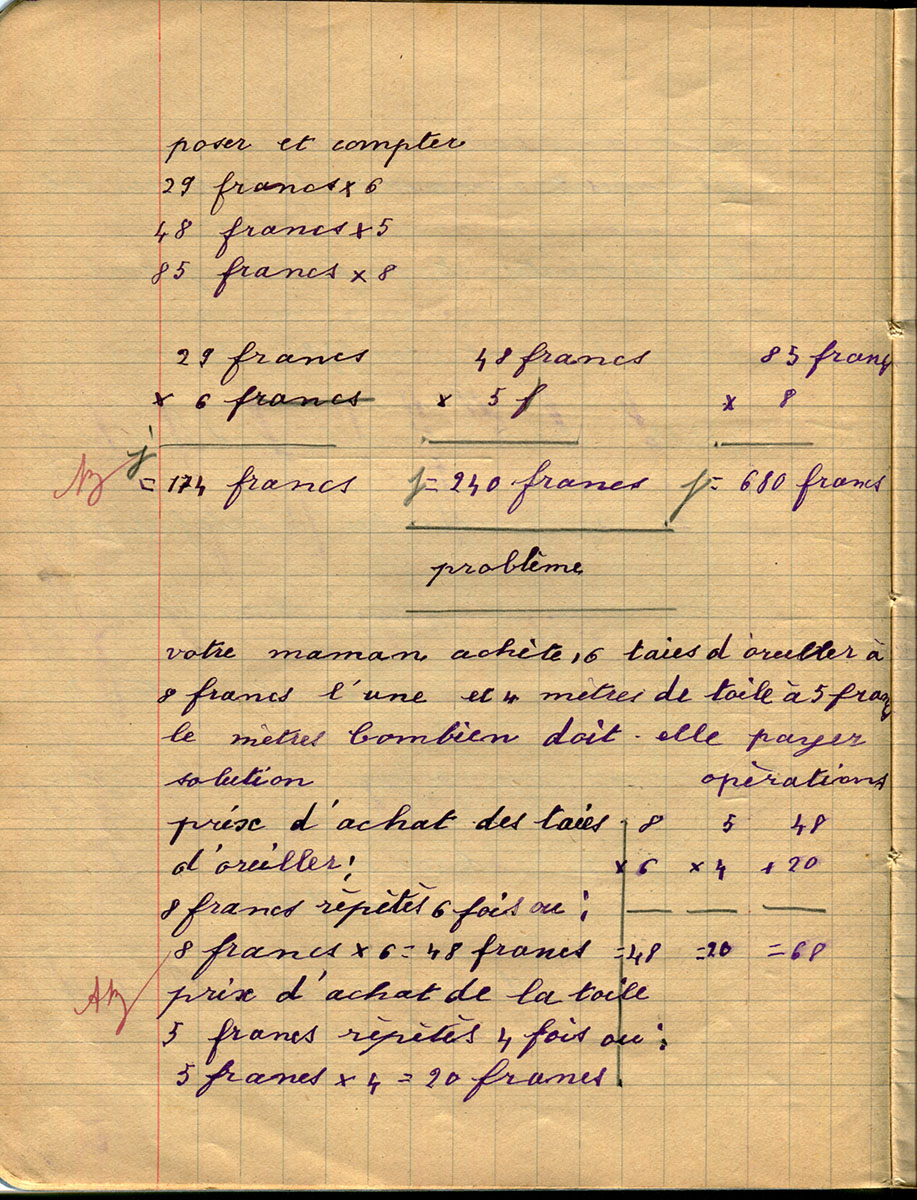 poser et compter
29 francs x 6
48 francs x 5
85 francs x 8
29 francs 48 francs 85 francs
x 6 francs x 5 f x 8
j
B = 174 francs j = 240 francs j = 680 francs
problème
votre maman achète, 6 taies d'oreiller à
8 francs l'une et 4 mètres de toile à 5 francs
le mètres Combien doit-elle payer
solution opèrations
prix d'achat des taies 8 5 48
d'oreiller; x 6 x 4 + 20
8 francs rèpètès 6 fois ou :
8 francs x 6 = 48 francs = 48 = 20 = 68
AB prix d'achat de la toile
5 francs rèpètès 4 fois ou :
5 francs x 4 = 20 francs